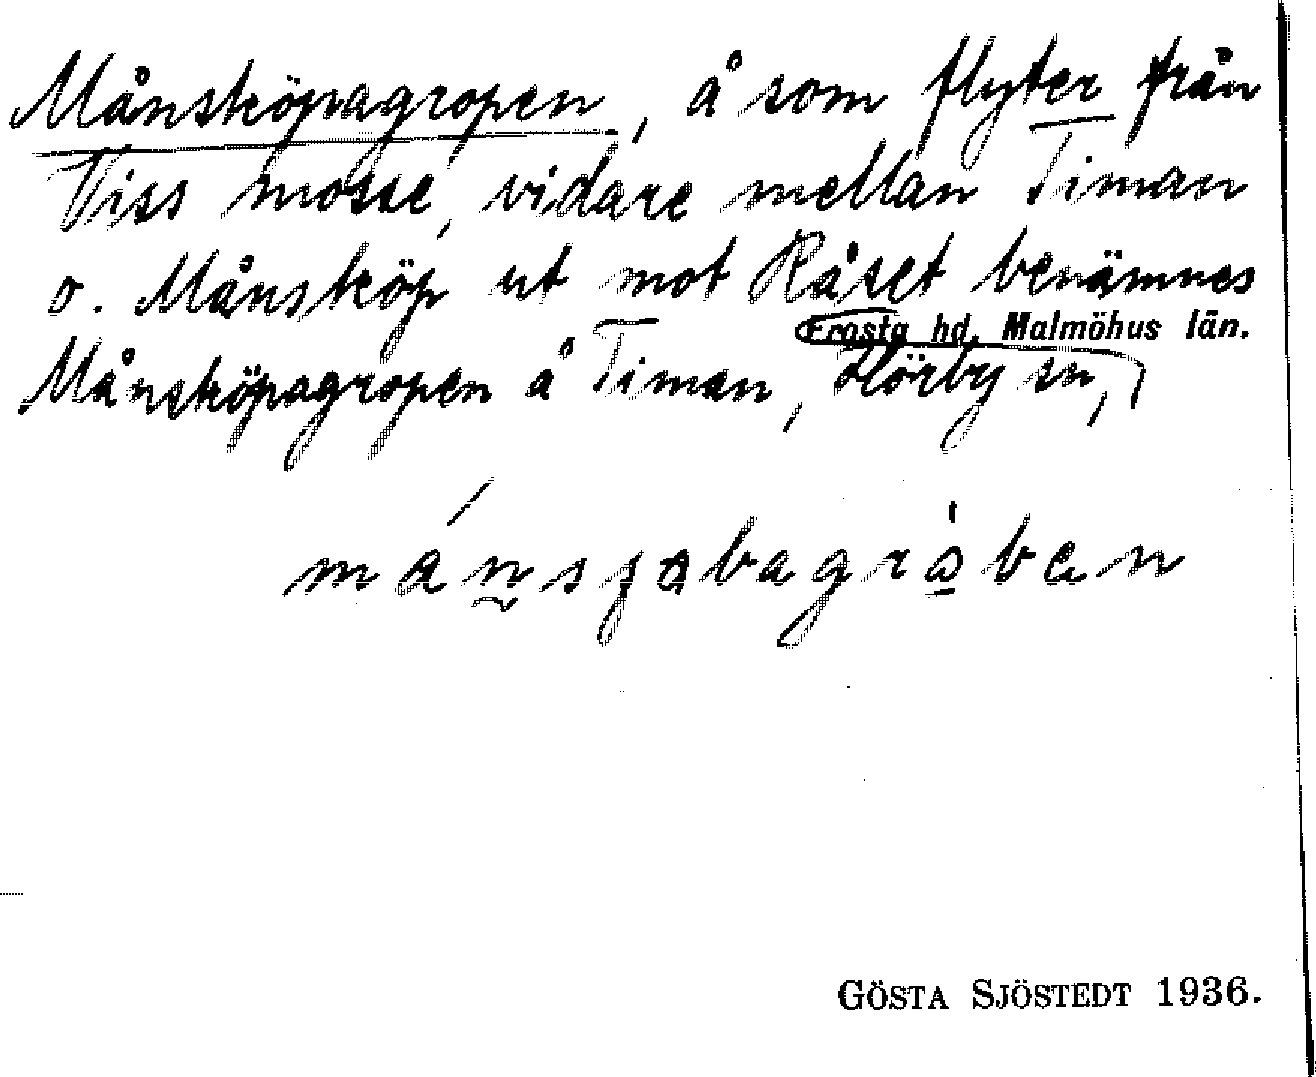 Månsköpagropen, å som flyter från
Viss mosse, vidare mellan Timan
o. Månsköp ut mot Råset benämnes
Frosta hd, Malmöhus län.
Månsköpagropen å Timan, Hörby sn,
GÖSTA SJÖSTEDT 1936.